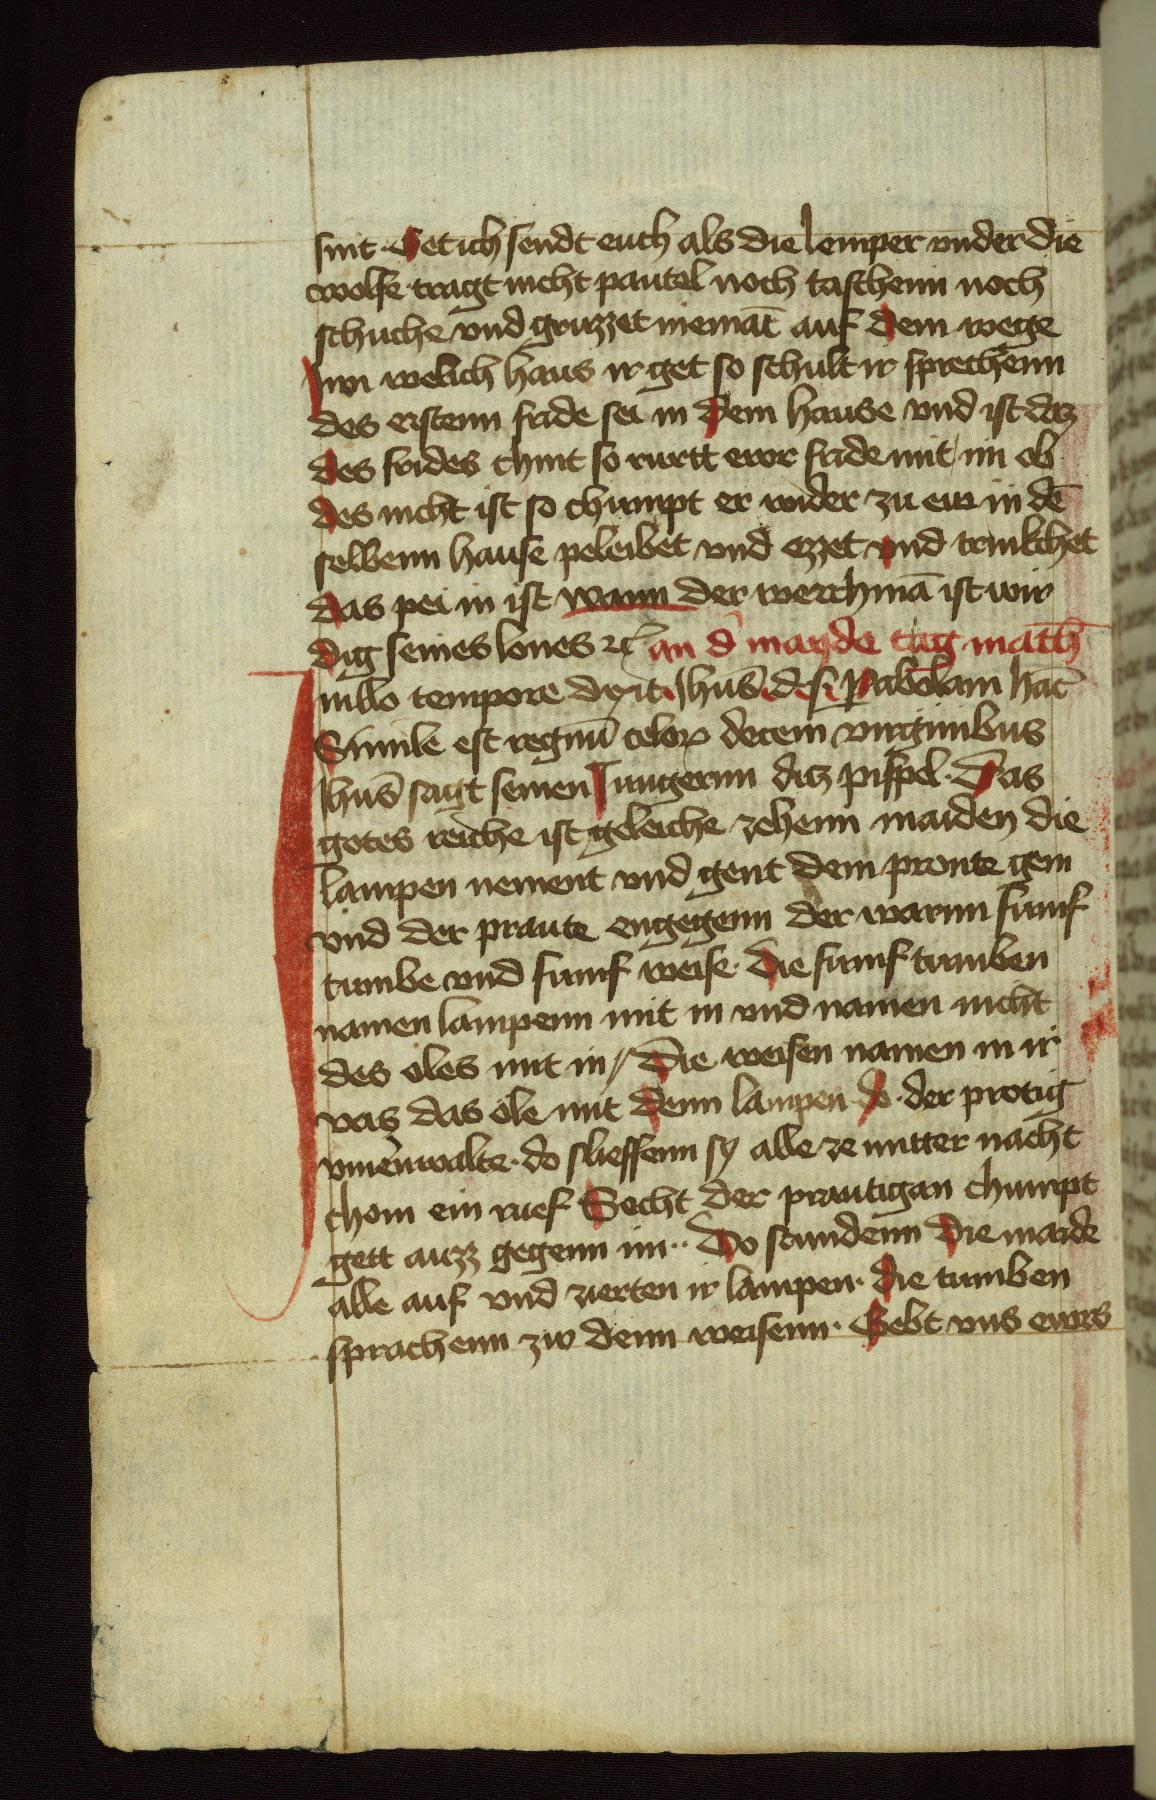 snit · Get ich sendt euch als die lemper vnder die
wolfe tragt nicht pautel noch taschenn noch
schuche vnd gruzzet niemāt auf dem wege
Inn welich haus ir get so schult ir sprechenn
des erstenn fride sei in dem hause vnd ist daz
des frides chint so rwett ewr fride mit im ob
des nicht ist so chumpt er wider zu eu in dē
selbenn hause peleibet vnd ezzet vnd trinkchet
das pei in ist wann der werchmā ist wir
dig seines lones ꝛc̄ an d̄ mayde tag math̄
In illo tempore dixit Jhūs d. s. Pabolam hāc
Simile est regnū celoꝝ decem virginibus
Jhūs sagt seinen Jungernn diz pispel · Das
gotes reiche ist geleiche zehenn maiden die
lampen nement vnd gent dem proute gem
vnd der praute engegenn der warnn funf
tumbe vnd funf weise · die funf tumben
namen lampenn mit in vnd namen nicht
des oles mit in / Die weisen namen in ir
vas das ole mit denn lampen do · der protig
vmēnwalte · do slieffenn sy alle ze mitter nacht
chom ein ruef Secht der prautigan chumpt
gett auzz gegenn im ·· Do stundenn die maide
alle auf vnd zierten ir lampen · die tumben
sprachenn zw denn weisenn · Gebt vns ewrs